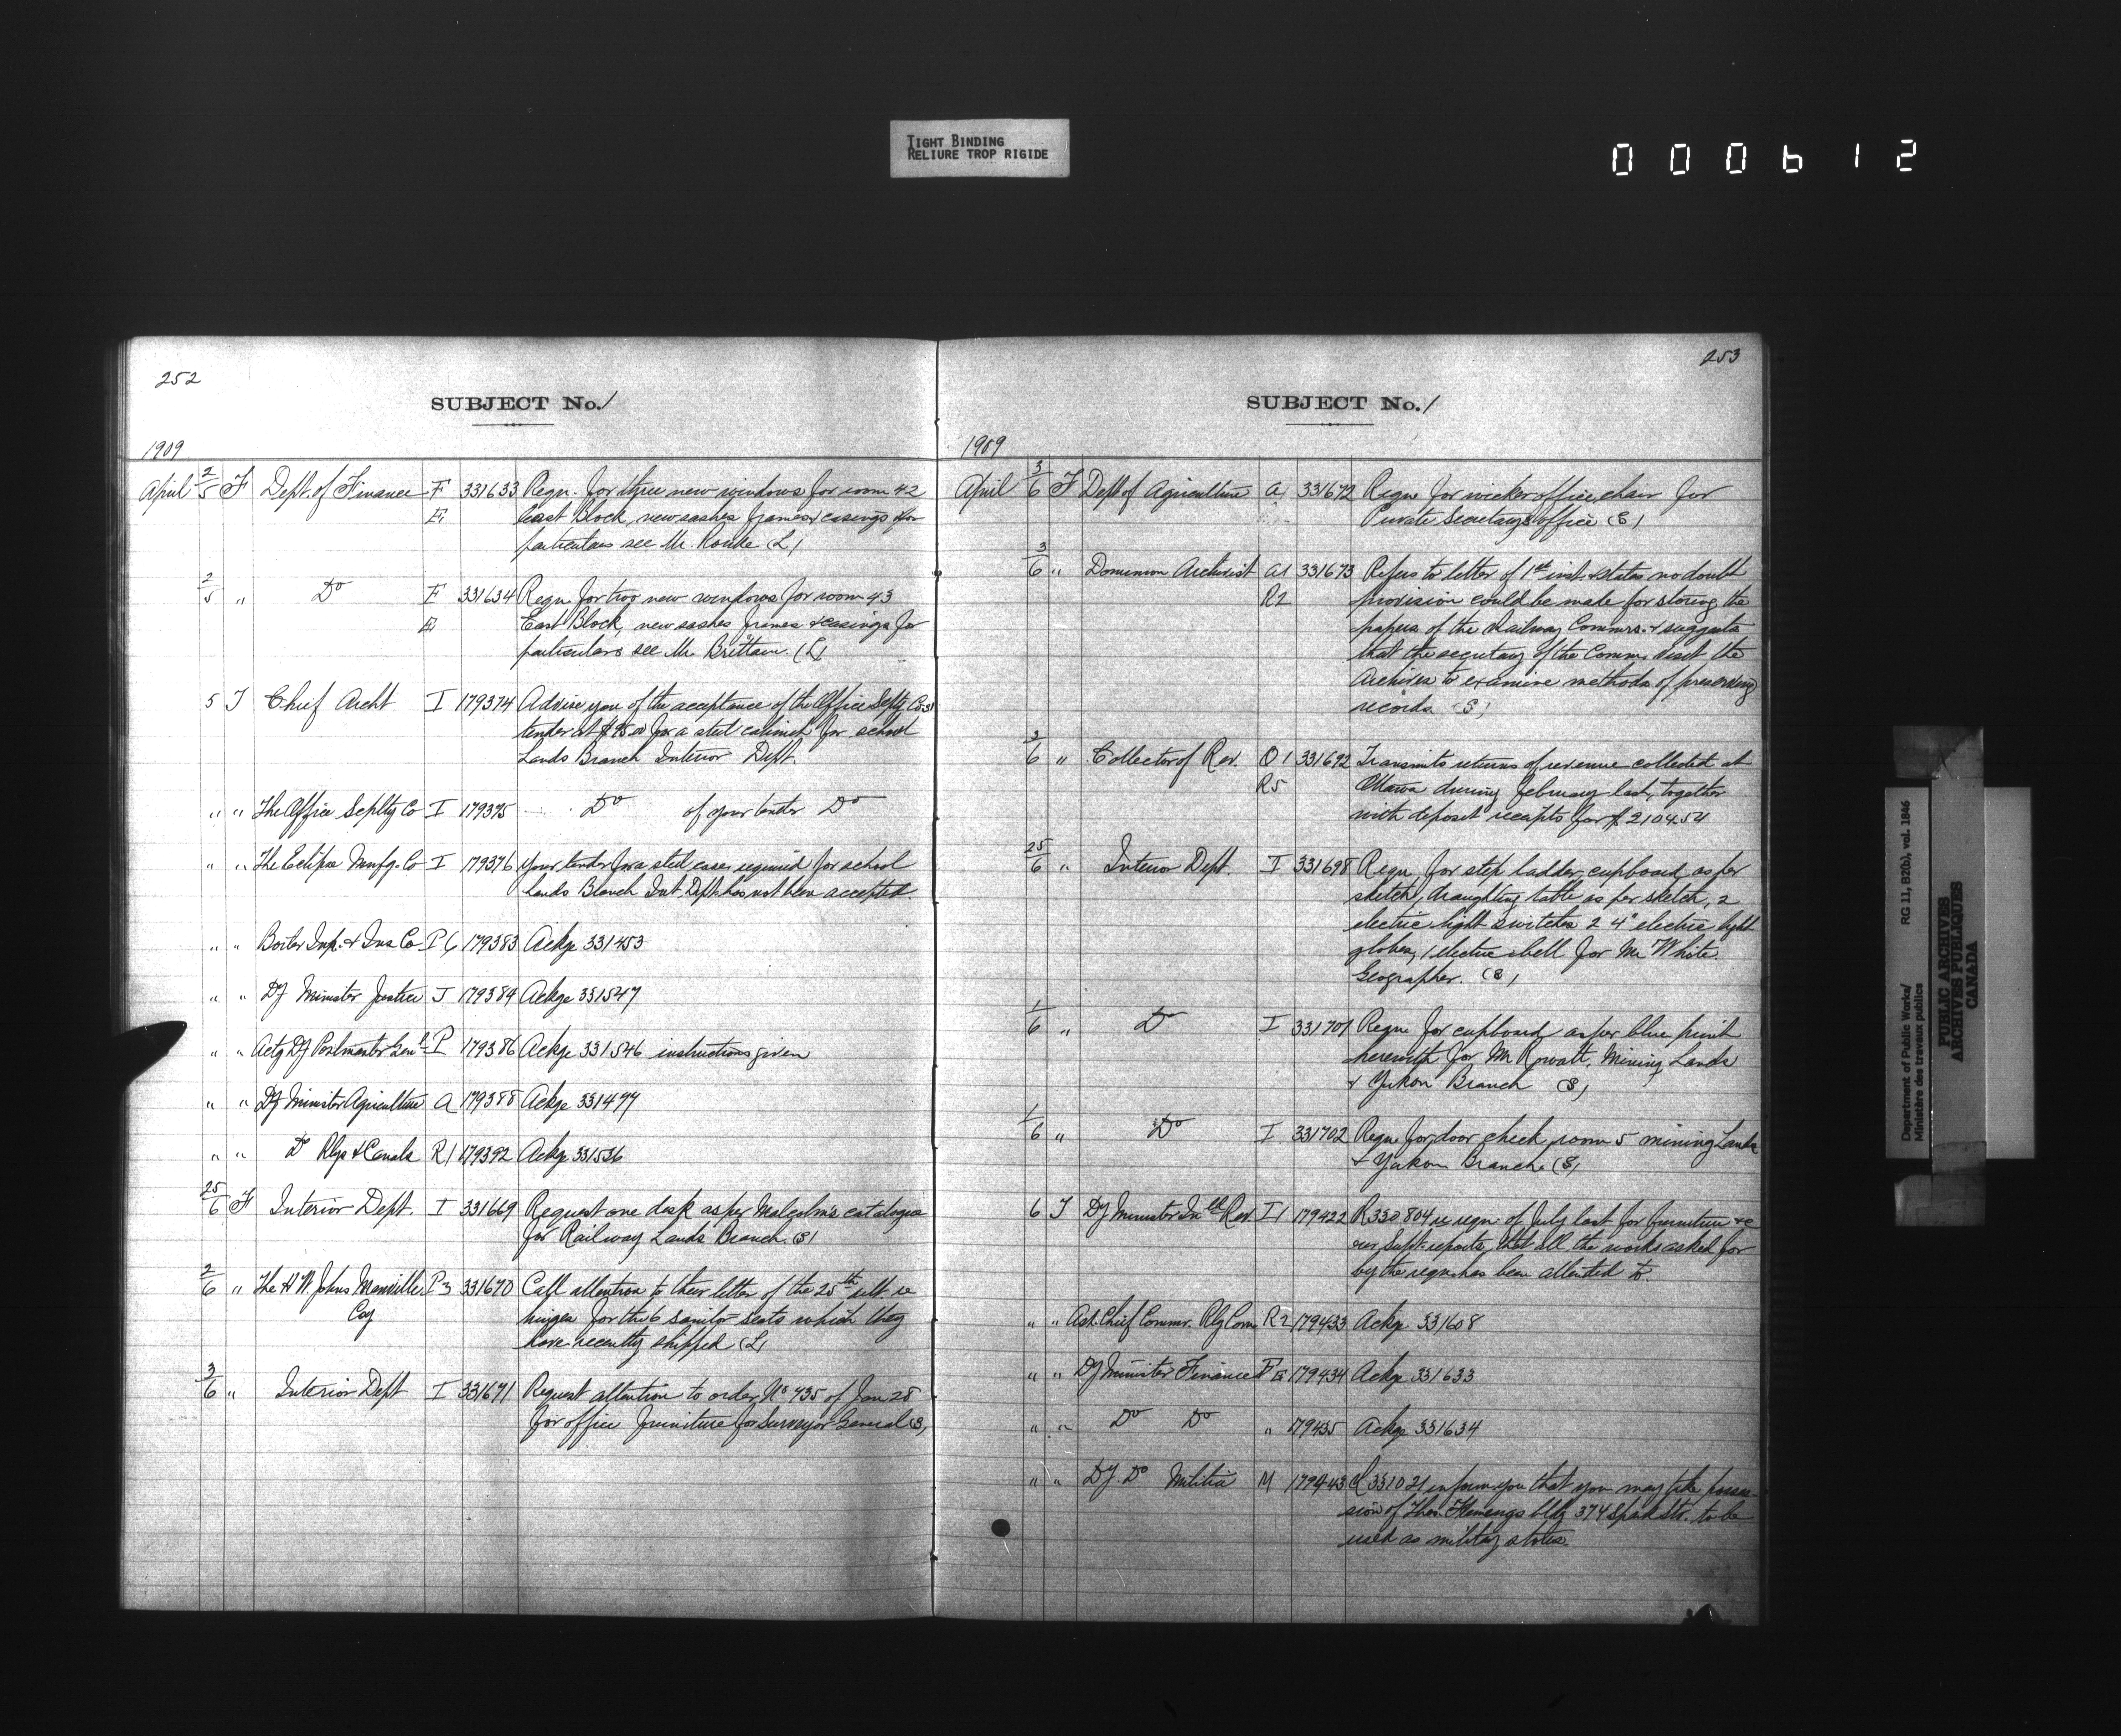 TIGHT BINDING
RELIURE TROP RIGIDE
000612
252
SUBJECT No. 1
1909
April 2/5 F Dept. of Finance F 331633 Reqn. for three new windows for room 42
E East Block, new sashes frames & casings for
particulars see Mr. Rourke (L)
2/5 " Do F 331634 Reqn. for two new windows for room 43
E East Block, new sashes frames & casings for
particulars see Mr. Brittain (L)
5 T Chief Archt I 179374 Advise you of the acceptance of the Office Splty Co's
tender at $95.00 for a steel cabinet for school
Lands Branch Interior Dept.
" " The Office Splty Co I 179375 Do of your tender Do
" " The Eclipse Mnfg. Co I 179376 Your tender for a steel case required for school
Lands Branch Int. Dept. has not been accepted.
" " Boiler Insp. & Ins Co P6 179383 Ackge 331453
" " Dy Minister Justice J 179384 Ackge 331547
" " Actg Dy Postmaster Genl P 179386 Ackge 331546 instructions given
" " Dy Minister Agriculture A 179388 Ackge 331477
" " Do Rlys & Canals R1 179392 Ackge 331536
25/6 F Interior Dept. I 331669 Request one desk as per Malcolm's catalogue
for Railway Lands Branch (S)
2/6 " The H W. Johns Manville P3 331670 Call attention to their letter of the 25th ult. re
Coy hinges for the 6 sanitor seats which they
have recently shipped (L)
3/6 " Interior Dept I 331671 Request attention to order No 735 of Jan 28
for office furniture for Surveyor General (S)
253
SUBJECT No. 1
1909
April 3/6 F Dept of Agriculture A1 331672 Reqn for wicker office chair for
Private Secretary's office (S)
3/6 " Dominion Archivist A1 331673 Refers to letter of 1st inst. & states no doubt
R2 provision could be make for storing the
papers of the Railway Commrs. & suggests
that the secretary of the Comm. visit the
Archives to examine methods of preserving
records (S)
3/6 " Collector of Rev. O1 331692 Transmits returns of revenue collected at
R5 Ottawa during February last, together
with deposit receipts for $2104.54
25/6 " Interior Dept. I 331698 Reqn for step ladder, cupboard as per
sketch, draughting table as per sketch, 2
electric light switches 2 4" electric light
globes, 1 electric bell for Mr White
Geographer. (S)
1/6 " Do I 331701 Reqn for cupboard as per blue print
herewith for Mr Rowatt, Mining Lands
& Yukon Branch (S)
1/6 " Do I 331702 Reqn for door check room 5 mining Lands
& Yukon Branch (S)
6 T Dy Minister Inld Rev I1 179422 R330804 re reqn. of July last for furniture &c
our Supt. reports that all the works asked for
by the reqn has been attended to.
" " Asst. Chief Commr. Rly Com R2 179433 Ackge 331608
" " Dy Minister Finance F E 179434 Ackge 331633
" " Do Do " 179435 Ackge 331634
" " Dy. Do Militia M 179443 R331021 inform you that you may take posses-
sion of Thos. Flemings bldg 374 Spark Str. to be
used as military stores.
Department of Public Works/ RG 11, B2(b), vol. 1846
Ministère des travaux publics
PUBLIC ARCHIVES
ARCHIVES PUBLIQUES
CANADA